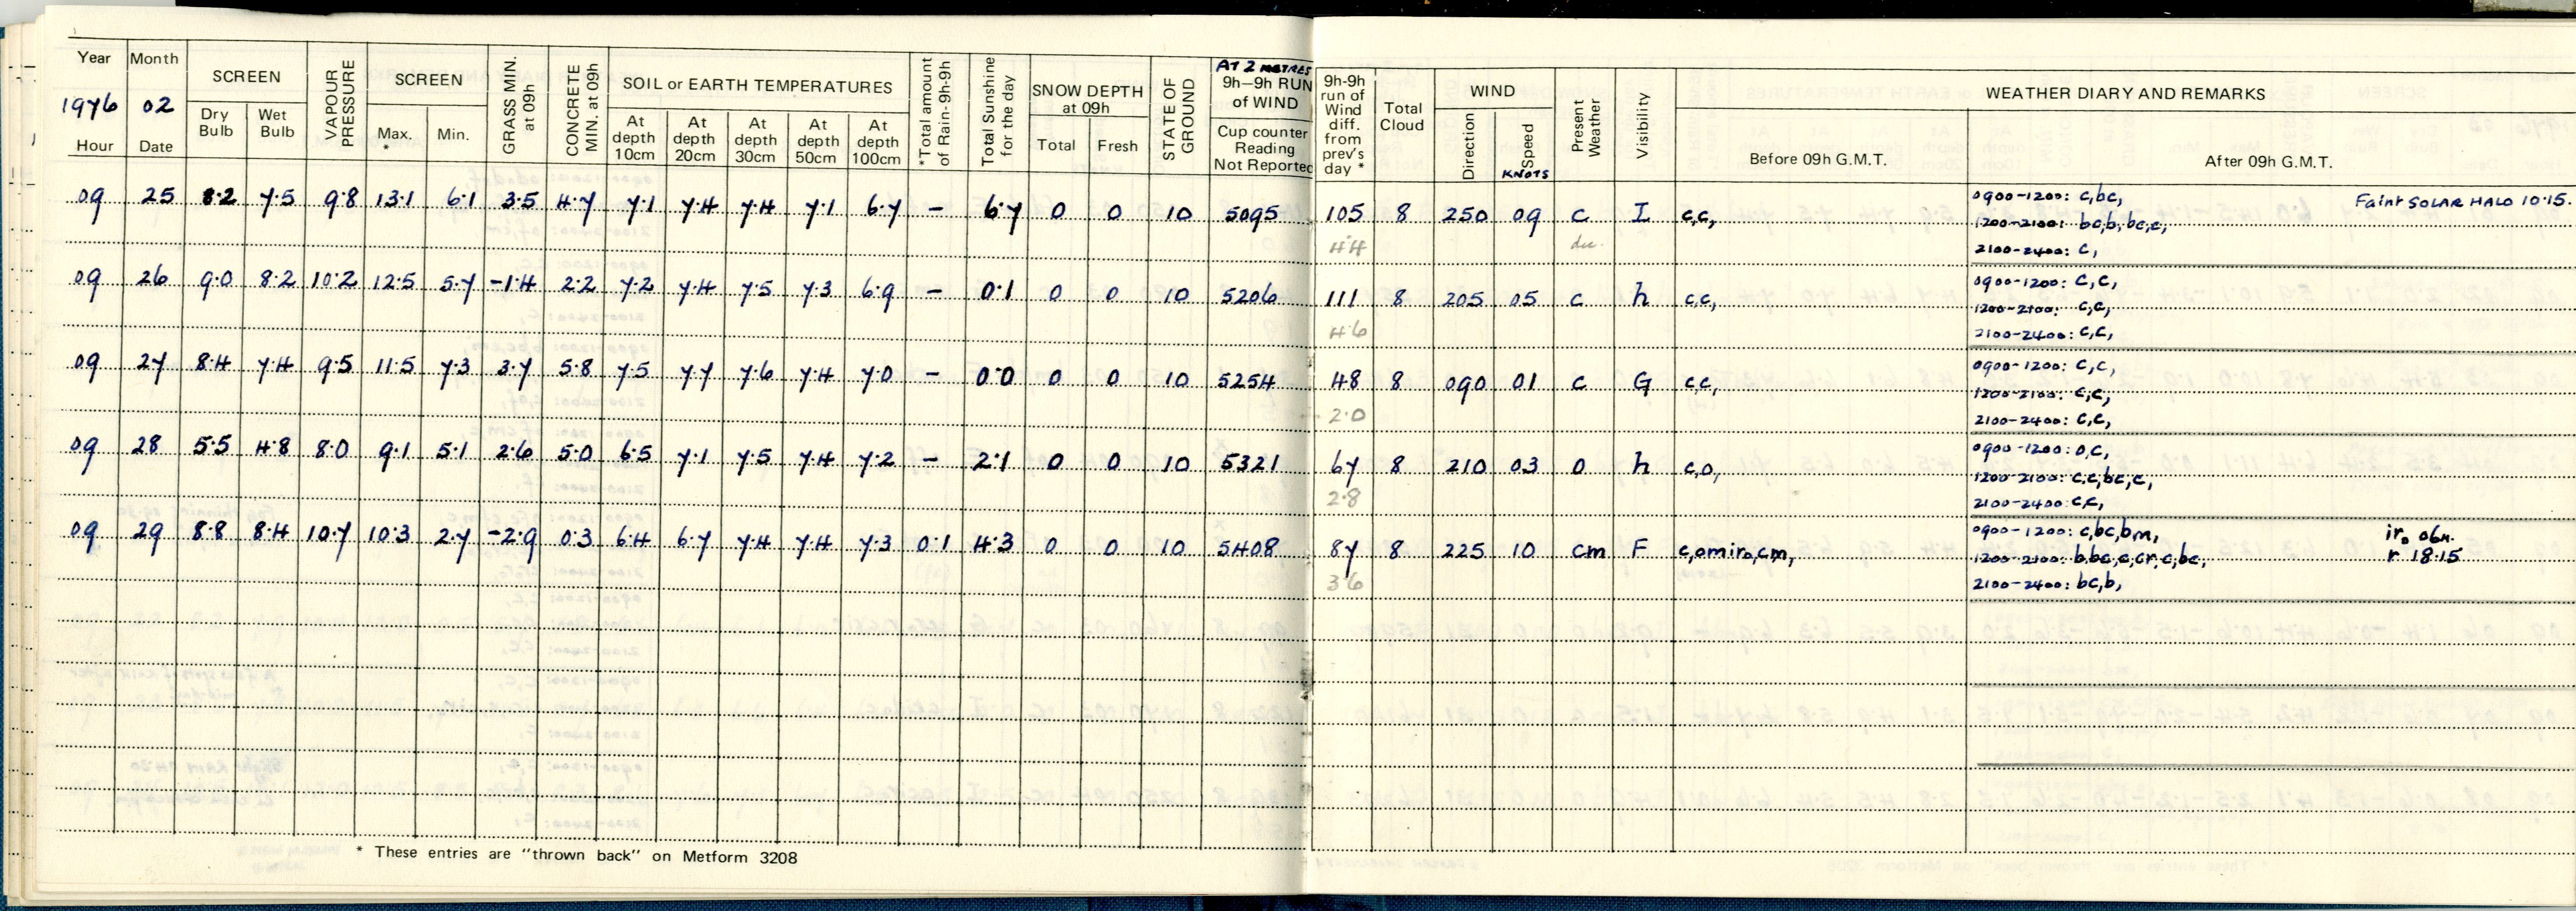 Year Month SCREEN VAPOUR PRESSURE SCREEN GRASS MIN. at 09h CONCRETE MIN. at 09h SOIL or EARTH TEMPERATURES *Total amount of Rain-9h-9h Total Sunshine for the day SNOW DEPTH at 09h STATE OF GROUND AT 2 METRES 9h-9h RUN of WIND 9h-9h run of Wind diff. from prev's day * Total Cloud WIND Present Weather Visibility WEATHER DIARY AND REMARKS
1976 02
Hour Date Dry Bulb Wet Bulb Max. * Min. At depth 10cm At depth 20cm At depth 30cm At depth 50cm At depth 100cm Total Fresh Cup counter Reading Not Reported Direction Speed KNOTS Before 09h G.M.T. After 09h G.M.T.
09 25 8.2 7.5 9.8 13.1 6.1 3.5 4.7 7.1 7.4 7.4 7.1 6.7 - 6.7 0 0 10 5095 105 8 250 09 c I c,c, 0900-1200: c,bc, Faint SOLAR HALO 10.15.
1200-2100: bc,b,bc,c,
4.4 dw. 2100-2400: c,
09 26 9.0 8.2 10.2 12.5 5.7 -1.4 2.2 7.2 7.4 7.5 7.3 6.9 - 0.1 0 0 10 5206 111 8 205 05 c h c,c, 0900-1200: c,c,
1200-2100: c,c,
4.6 2100-2400: c,c,
09 27 8.4 7.4 9.5 11.5 7.3 3.7 5.8 7.5 7.7 7.6 7.4 7.0 - 0.0 0 0 10 5254 48 8 090 01 c G c,c, 0900-1200: c,c,
1200-2100: c,c,
2.0 2100-2400: c,c,
09 28 5.5 4.8 8.0 9.1 5.1 2.6 5.0 6.5 7.1 7.5 7.4 7.2 - 2.1 0 0 10 5321 67 8 210 03 o h c,o, 0900-1200: o,c,
1200-2100: c,c,bc,c,
2.8 2100-2400: c,c,
09 29 8.8 8.4 10.7 10.3 2.7 -2.9 0.3 6.4 6.7 7.4 7.4 7.3 0.1 4.3 0 0 10 5408 87 8 225 10 cm F c,omiro,cm, 0900-1200: c,bc,bm, iro 06h.
1200-2100: b,bc,c,cr,c,bc, r 18.15
3.6 2100-2400: bc,b,
* These entries are "thrown back" on Metform 3208